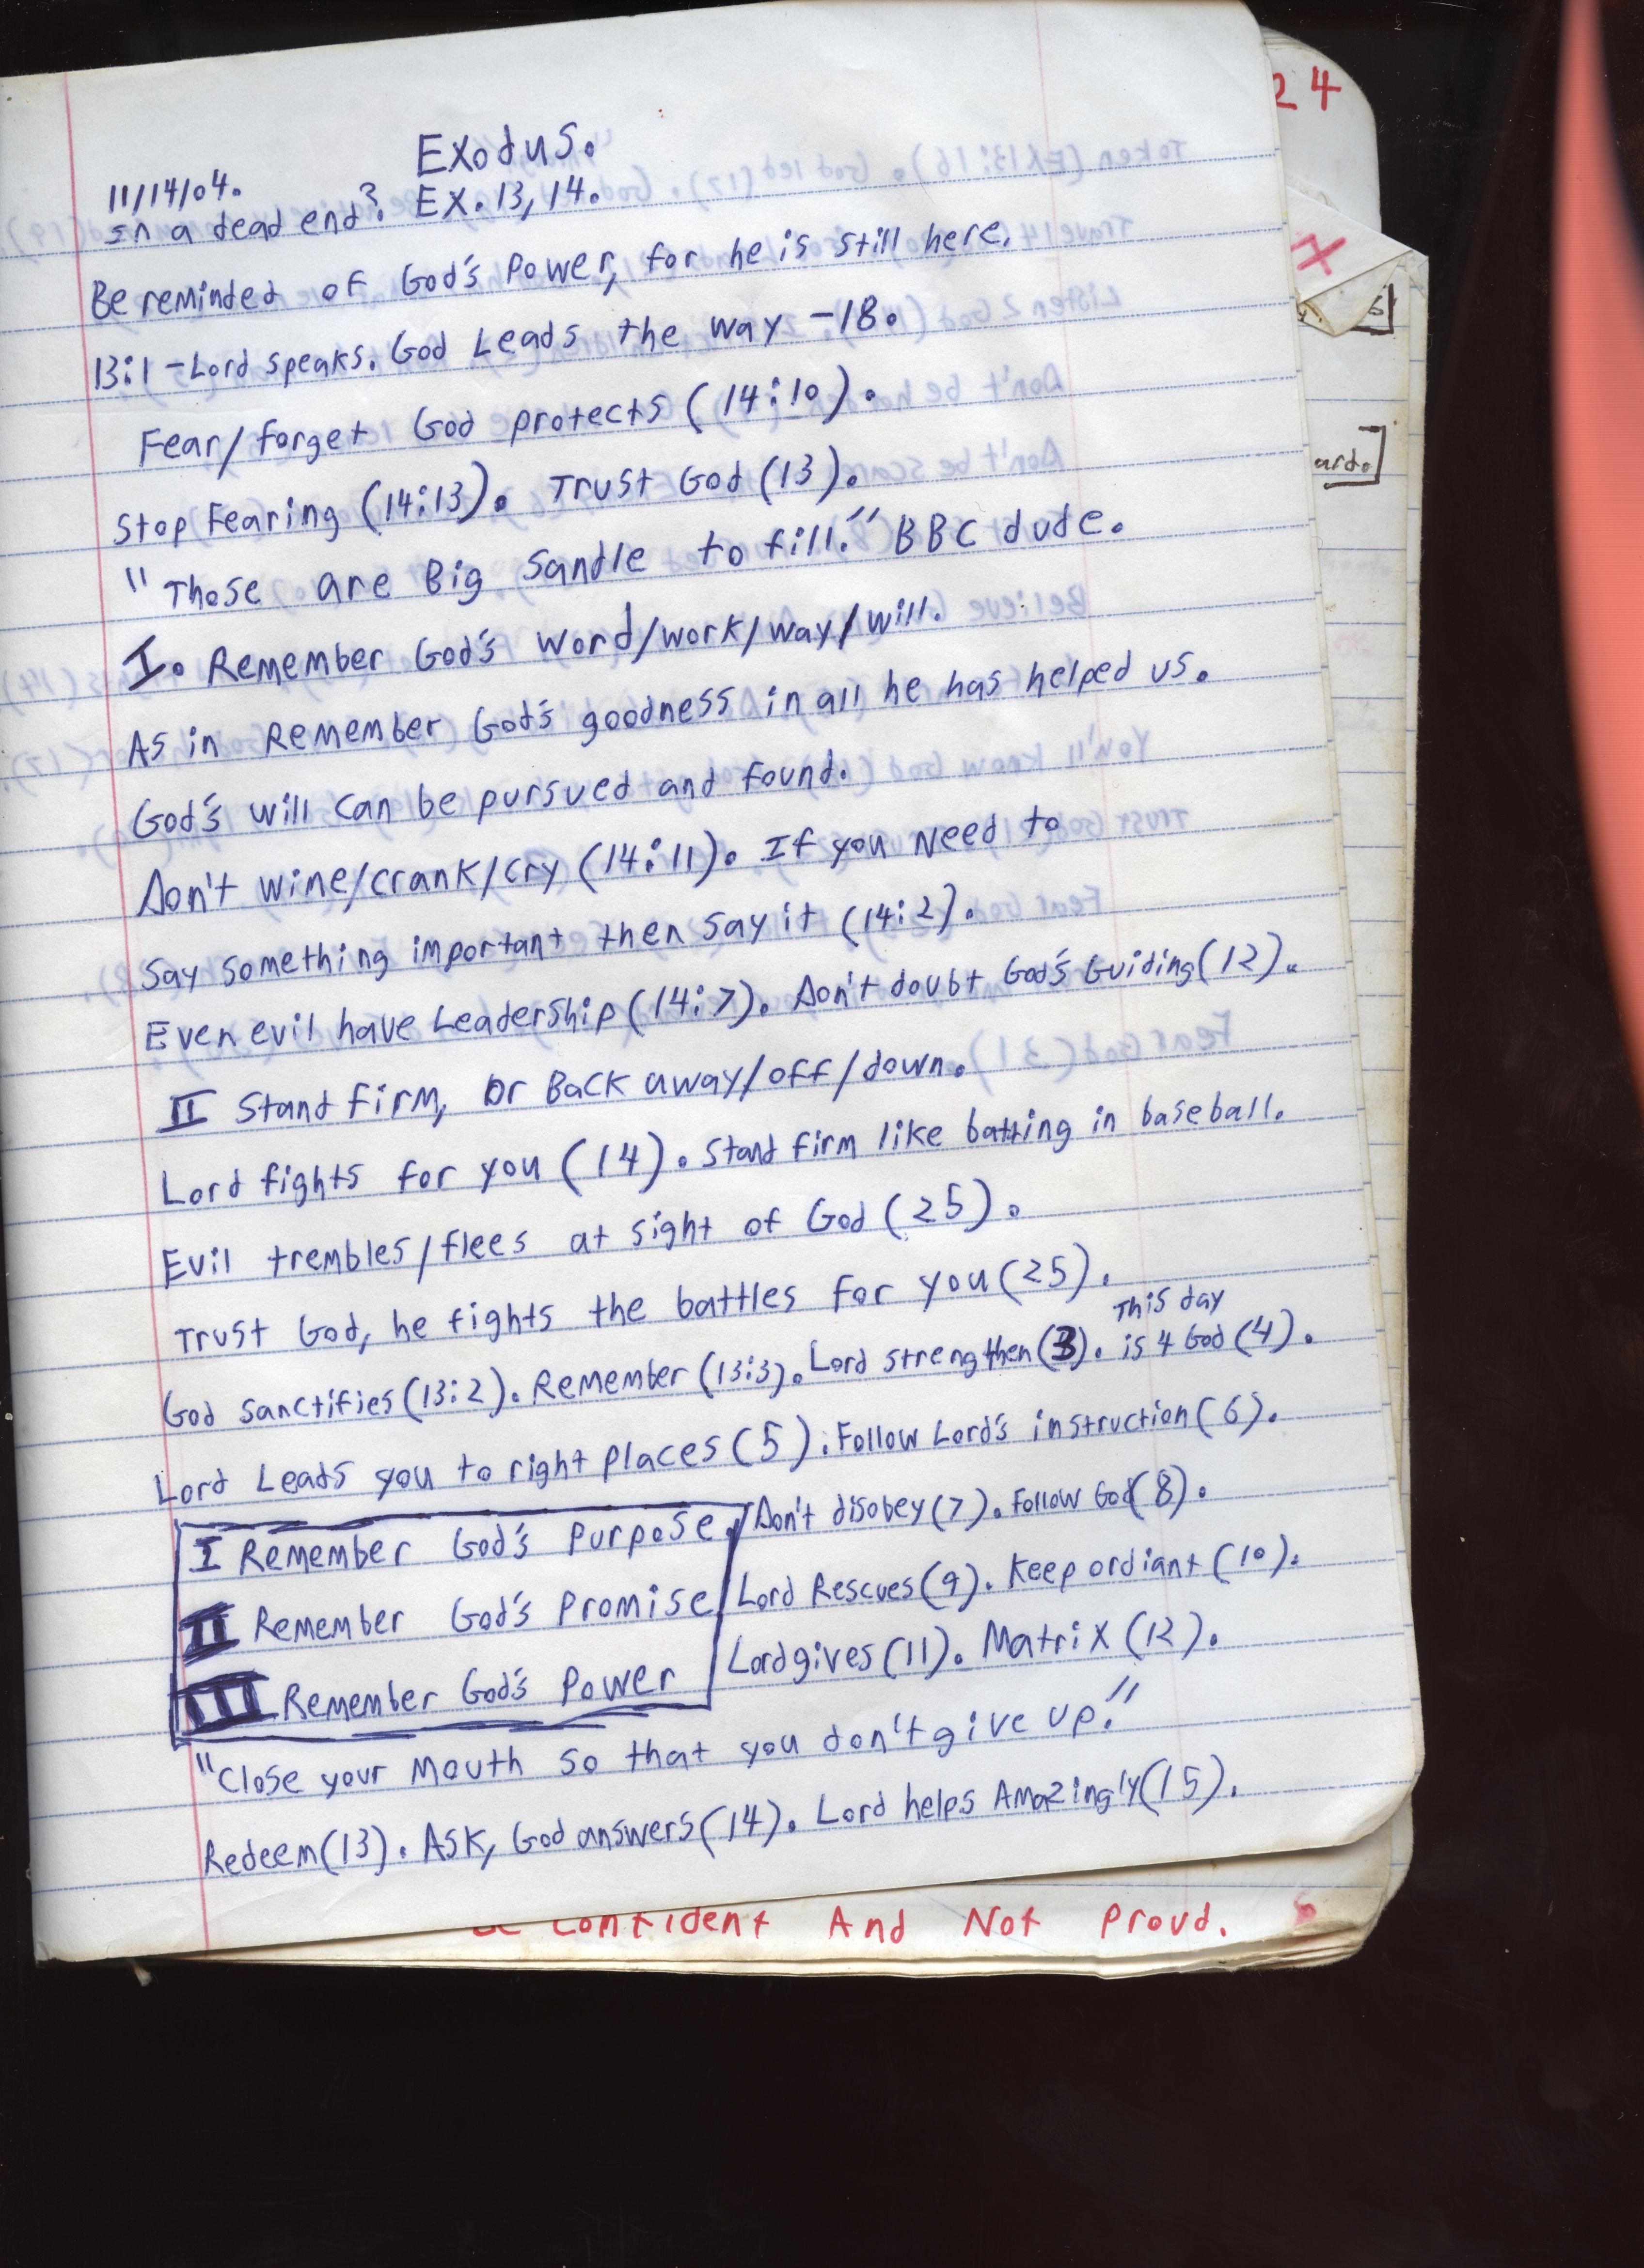 Exodus.
11/14/04.
In a dead end? EX. 13, 14.
Be reminded of God's Power, for he is still here.
13:1 - Lord speaks. God Leads the way -18.
Fear/forget God protects (14:10).
Stop Fearing (14:13). Trust God (13).
"Those are Big Sandle to fill." BBC dude.
I. Remember God's word/work/way/will.
As in Remember God's goodness in all he has helped us.
God's will can be pursued and found.
Don't wine/crank/cry (14:11). If you Need to
Say something important then say it (14:2).
Even evil have Leadership (14:7). Don't doubt God's Guiding (12).
II Stand firm, or Back away/off/down.
Lord fights for you (14). Stand firm like batting in baseball.
Evil trembles/flees at sight of God (25).
Trust God, he fights the battles for you (25).
This day
God sanctifies (13:2). Remember (13:3). Lord strengthen (3). is 4 God (4).
Lord Leads you to right places (5). Follow Lord's instruction (6).
I Remember God's Purpose. Don't disobey (7). Follow God (8).
II Remember God's Promise Lord Rescues (9). Keep ordiant (10).
III Remember God's Power Lord gives (11). Matrix (12).
"Close your Mouth so that you don't give up."
Redeem (13). Ask, God answers (14). Lord helps Amazingly (15).
Confident And Not Proud.
24
X
ard.